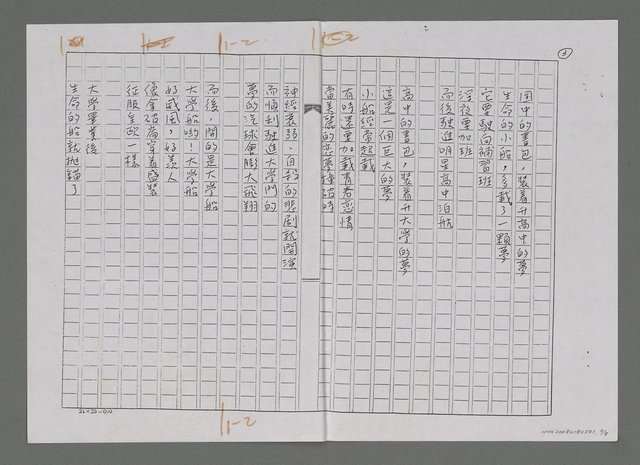 ③
國中的書包，裝著升高中的夢
生命的小船，多載了一顆夢
它要駛向補習班
深夜要加班
而後駛進明星高中泊航
高中的書包，裝著升大學的夢
這是一個巨大的夢
小船經常超載
有時還要加載青春戀情
當美麗的戀夢撞破時
神經衰弱、自殺的悲劇就開演
而順利駛進大學門的
夢的汽球會膨大飛翔
而後，開的是大學船
大學船喲！大學船
好威風，好美人
像拿破崙穿着盛裝
征服全歐一樣
大學畢業後
生命的船就拋錨了
1-2
1-2